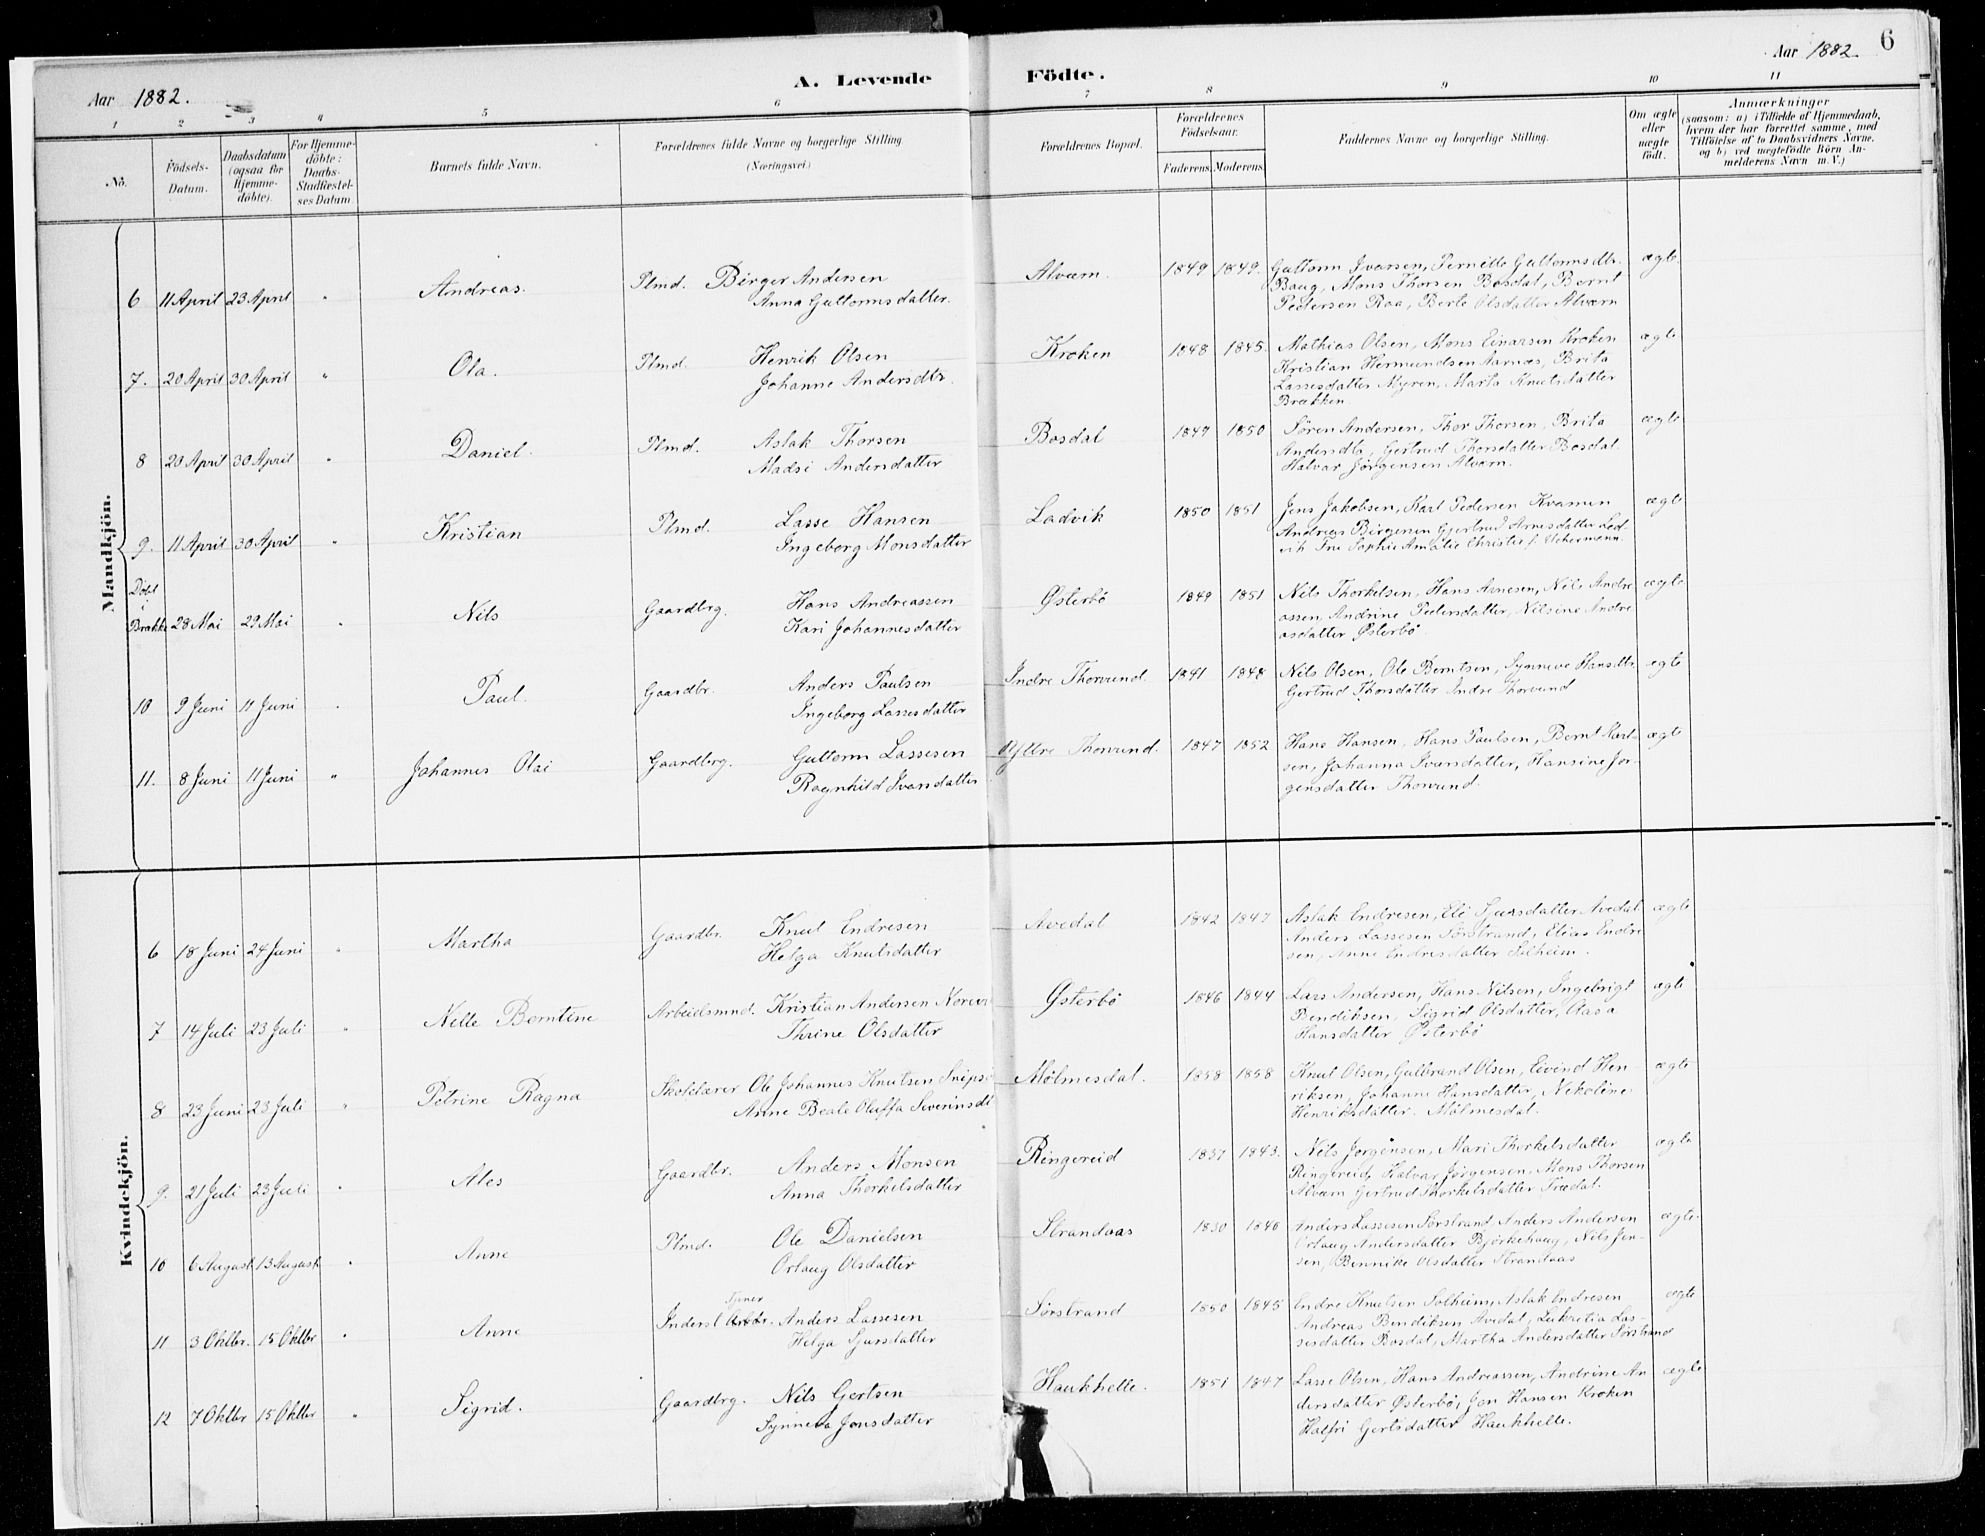 Aar 1882.
A. Levende Födte.
Aar 1882. 6
1 2 3 4 5 6 7 8 9 10 11
No.
Födsels-Datum.
Daabsdatum (ogsaa for Hjemme-döbte).
For Hjemme-döbte: Daabs-Stadfæstel-ses Datum
Barnets fulde Navn.
Forældrenes fulde Navne og borgerlige Stilling (Næringsvei)
Forældrenes Bopæl.
Forældrenes Födselsaar.
Faderens Moderens
Faddernes Navne og borgerlige Stilling.
Om ægte eller uægte födt.
Anmærkninger
(saasom: a) i Tilfælde af Hjemmedaab,
hvem der har forrettet samme, med
Tilföielse af to Daabsvidners Navne.
og b) ved uægtefödte Börn An-
melderens Navn m. V.)
Mandkjön.
6 11 April 23 April " Andreas. Plmd. Birger Andersen Alværn. 1849 1849. Guttorm Ivarsen, Pernille Guttormsdtr. ægte
Anna Guttormsdatter. Baug, Mons Thorsen Bosdal, Bernt
Pedersen Raa, Berte Olsdatter Alværn
7. 20 April 30 April " Ola. Plmd. Henrik Olsen Kroken 1848 1845. Mathias Olsen, Mons Einarsen Kroken ægte
Johanne Andersdtr. Kristian Hermundsen Aarnæs, Brita
Lassesdatter Myren, Marta Knutsdatter
Brækken.
8 20 April 30 April " Daniel. Plmd. Aslak Thorsen Bosdal 1847 1850 Søren Andersen, Thor Thorsen, Brita ægte
Madsi Andersdatter Andersdtr, Gertrud Thorsdatter Bosdal.
Halvar Jørgensen Alværn.
9. 11 April 30 April " Kristian Plmd. Lasse Hansen Ladvik 1850 1851 Jens Jakobsen, Karl Pedersen Kvamm ægte
Ingeborg Monsdatter Andreas Birgersen Gjertrud Arnesdatter Lad
vik Fru Sophie Amalie Christie f. Uchermann.
Døbt i Brække 28 Mai 29 Mai " Nils Gaardbrg. Hans Andreassen Østerbö 1849 1851 Nils Thorkelsen, Hans Arnesen, Nils Andre ægte
Kari Johannesdatter assen, Andrine Pedersdatter, Nilsine Andre
asdatter Østerbö.
10 9 Juni 11 Juni " Paul. Gaardbr. Anders Paulsen Indre Thorvund. 1841 1848 Nils Olsen, Ole Berntsen, Synneve Hansdtr. ægte
Ingeborg Lassesdatter Gertrud Thorsdatter Indre Thorvund
11. 8 Juni 11 Juni " Johannes Olai Gaardbrg. Guttorm Lassesen Yttre Thorvund. 1847 1852 Hans Hansen, Hans Paulsen, Bernt Karl- ægte
Ragnhild Ivarsdatter sen, Johanna Ivarsdatter, Hansine Jør-
gensdatter Thorvund.
Kvindekjön.
6 18 Juni 24 Juni " Martha Gaardbr. Knut Endresen Avedal 1842 1847 Aslak Endresen, Eli Sjursdatter Avedal ægte
Helga Knutsdatter Anders Lassesen Sørstrand, Elias Endre
sen, Anne Endresdatter Solheim.
7 14 Juli 23 Juli " Nille Berntine Arbeidsmnd. Kristian Andersen Østerbö 1846 1844 Lars Andersen, Hans Nilsen, Ingebrigt ægte
Thrine Olsdatter Bendiksen, Sigrid Olsdatter, Aasa
Hansdatter Østerbö
8 23 Juni 23 Juli " Petrine Ragna Skolelærer Ole Johannes Knutsen Mölmesdal. 1858 1858 Knut Olsen, Gulbrand Olsen, Eivind Hen ægte
Anne Beate Oluffa Severinsdt riksen, Johanne Hansdatter, Nekoline
Henriksdatter. Mölmesdal.
9. 21 Juli 23 Juli " Ales Gaardbr. Anders Monsen Ringereid 1837 1843. Nils Jørgensen, Mari Thorkelsdatter ægte
Anna Thorkelsdatter Ringereid, Halvar Jørgensen, Mons Thorsen
Alværn Gertrud Thorkelsdatter Trædal.
10 6 August 13 August " Anne Plmd. Ole Danielsen Strandaas 1830 1840 Anders Lassesen Sørstrand, Anders Andersen ægte
Orlaug Olsdatter Orlaug Andersdatter Bjørkehaug, Nils Jen-
sen, Bennike Olsdatter Strandaas
11 3 Oktbr. 15 Oktbr " Anne Inderst Tjener Anders Lassesen Sørstrand 1850 1845 Endre Knutsen Solheim, Aslak Endresen ægte
Helga Sjursdatter Andreas Bendiksen Avedal, Lukretia Las-
sesdatter Bosdal, Martha Andersdatter Sørstrand
12 7 Oktbr 15 Oktbr " Sigrid. Gaardbrg. Nils Gertsen Haukhelle. 1851 1847 Lasse Olsen, Hans Andreassen, Andrine An ægte
Synneva Jonsdatter dersdatter Østerbö, Jon Hansen Kroken
Halfri Gertsdatter Haukhelle.